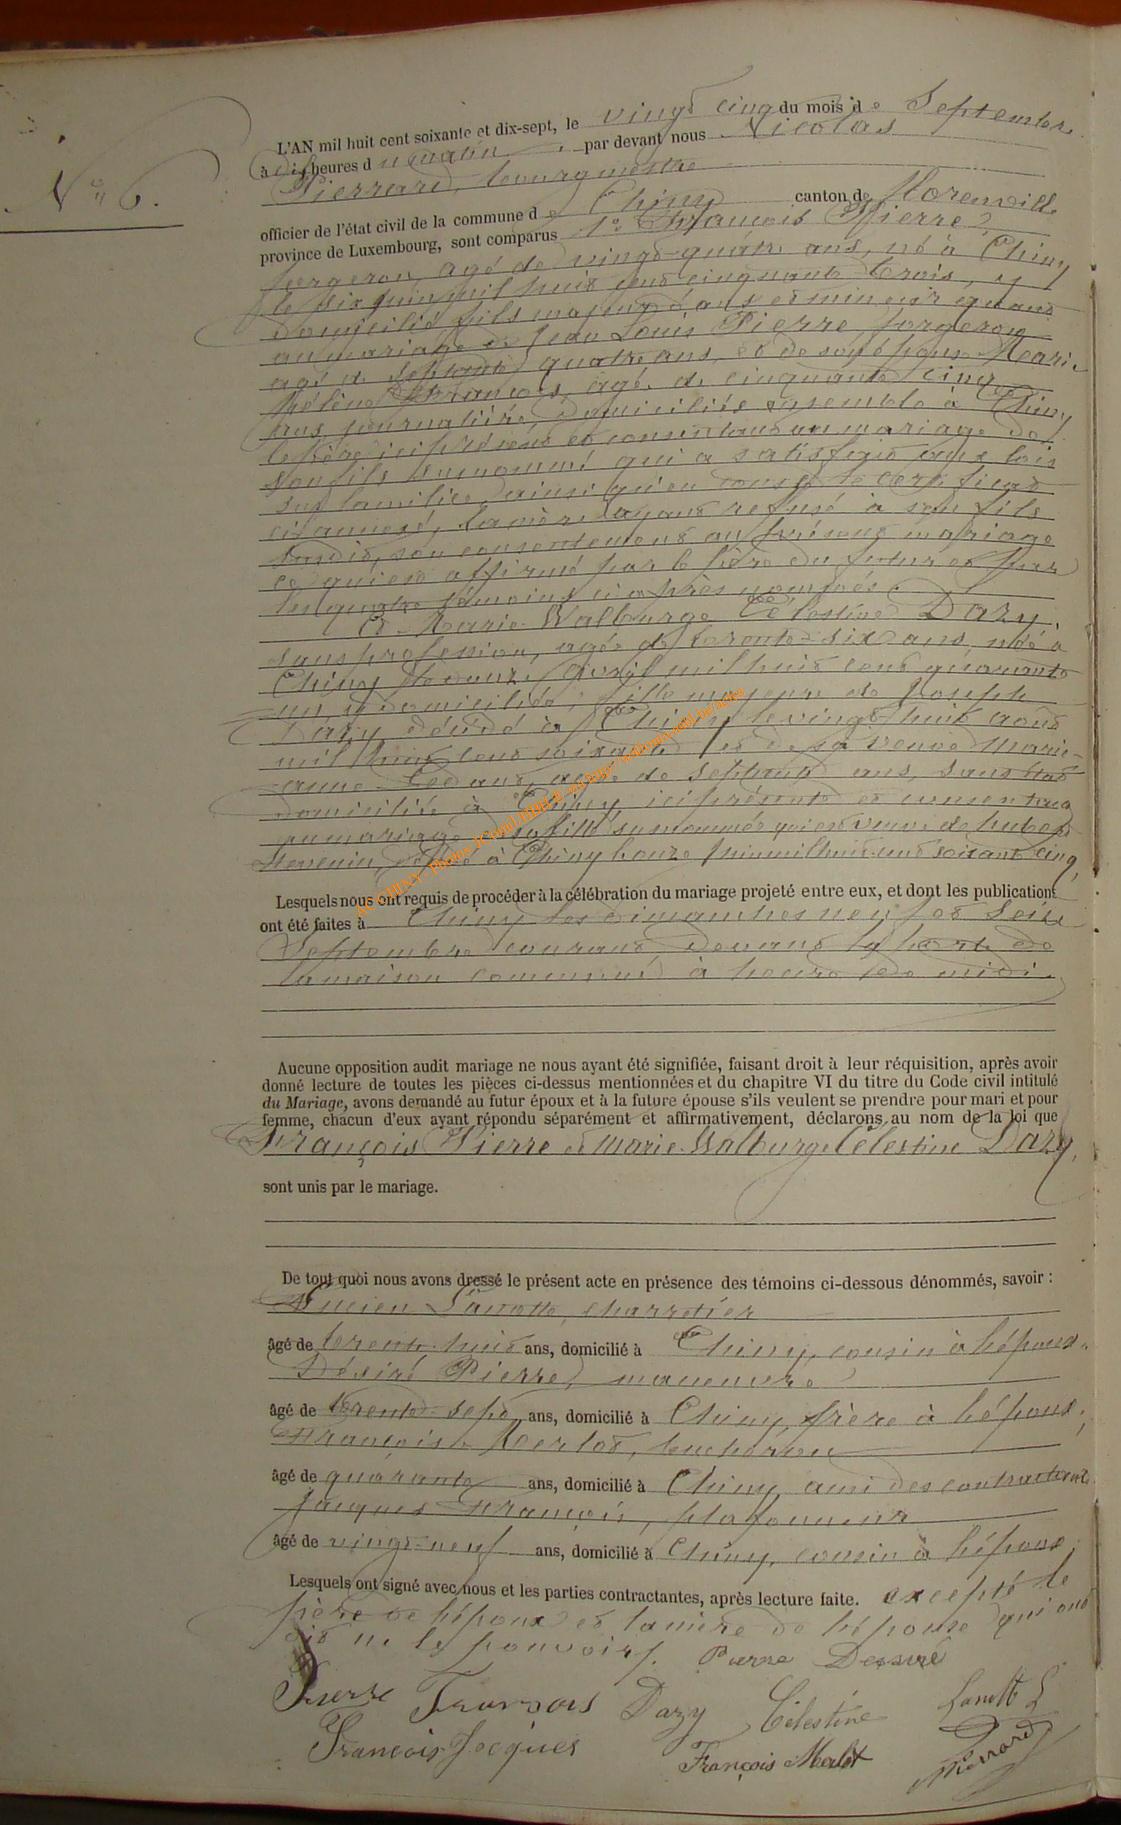 L'AN mil huit cent soixante et dix-sept, le vingt cinq du mois de Septembre
à dix heures du matin, par devant nous Nicolas
Pierrard, bourgmestre
N° 6.
officier de l'état civil de la commune de Chiny canton de Florenville
province de Luxembourg, sont comparus 1° François Pierre
forgeron, agé de vingt-quatre ans, né à Chiny
le six juin mil huit cent cinquante trois, y
domicilié, fils majeur d'ans et mineur quant
au mariage de Jean Louis Pierre forgeron
agé de septante quatre ans, et de son épouse Marie
Hélène François, agée de cinquante cinq
ans journalière, domiciliés ensemble à Chiny
le père ici présent et consentant au mariage de
son fils surnommé qui a satisfait aux lois
sur la milice, ainsi qu'en conste le certificat
ci annexé, la mère ayant refusé à son fils
susdit, son consentement au présent mariage
ce qui est affirmé par le père du futur et par
les quatre témoins ci après nommés.
Et Marie-Walburge Célestine Dazy,
sans profession, agée de trente-six ans, née à
Chiny le onze Avril mil huit cent quarante
un y domiciliée, fille majeure de Joseph
Dazy, décédé à Chiny le vingt huit août
mil huit cent soixante et de sa veuve Marie-
anne agée de septante ans, sans état
domiciliée à Chiny, ici présente et consentant
au mariage de sa fille surnommée qui est veuve de hubert
décédé à Chiny le onze juin mil huit cent soixante cinq,
Lesquels nous ont requis de procéder à la célébration du mariage projeté entre eux, et dont les publications
ont été faites à Chiny les dimanches neuf et seize
Septembre courant devant la porte de
la maison commune à heure de midi.
Aucune opposition audit mariage ne nous ayant été signifiée, faisant droit à leur réquisition, après avoir
donné lecture de toutes les pièces ci-dessus mentionnées et du chapitre VI du titre du Code civil intitulé
du Mariage, avons demandé au futur époux et à la future épouse s'ils veulent se prendre pour mari et pour
femme, chacun d'eux ayant répondu séparément et affirmativement, déclarons au nom de la loi que
François Pierre et Marie-Walburge Célestine Dazy,
sont unis par le mariage.
De tout quoi nous avons dressé le présent acte en présence des témoins ci-dessous dénommés, savoir :
Lucien Lanotte, charretier
âgé de trente-huit ans, domicilié à Chiny, cousin à l'époux.
Désiré Pierre, manoeuvre
âgé de trente-sept ans, domicilié à Chiny, frère à l'époux,
François Merlot, bucheron
âgé de quarante ans, domicilié à Chiny, ami des contractants
Jacques François, plafonneur
âgé de vingt-neuf ans, domicilié à Chiny, cousin à l'époux;
Lesquels ont signé avec nous et les parties contractantes, après lecture faite. excepté le
père de l'époux et la mère de l'épouse qui ont
dit ne le pouvoir. Pierre Desiré
Pierre François Dazy Célestine Lanotte L
François Jacques François Merlot NPierrard